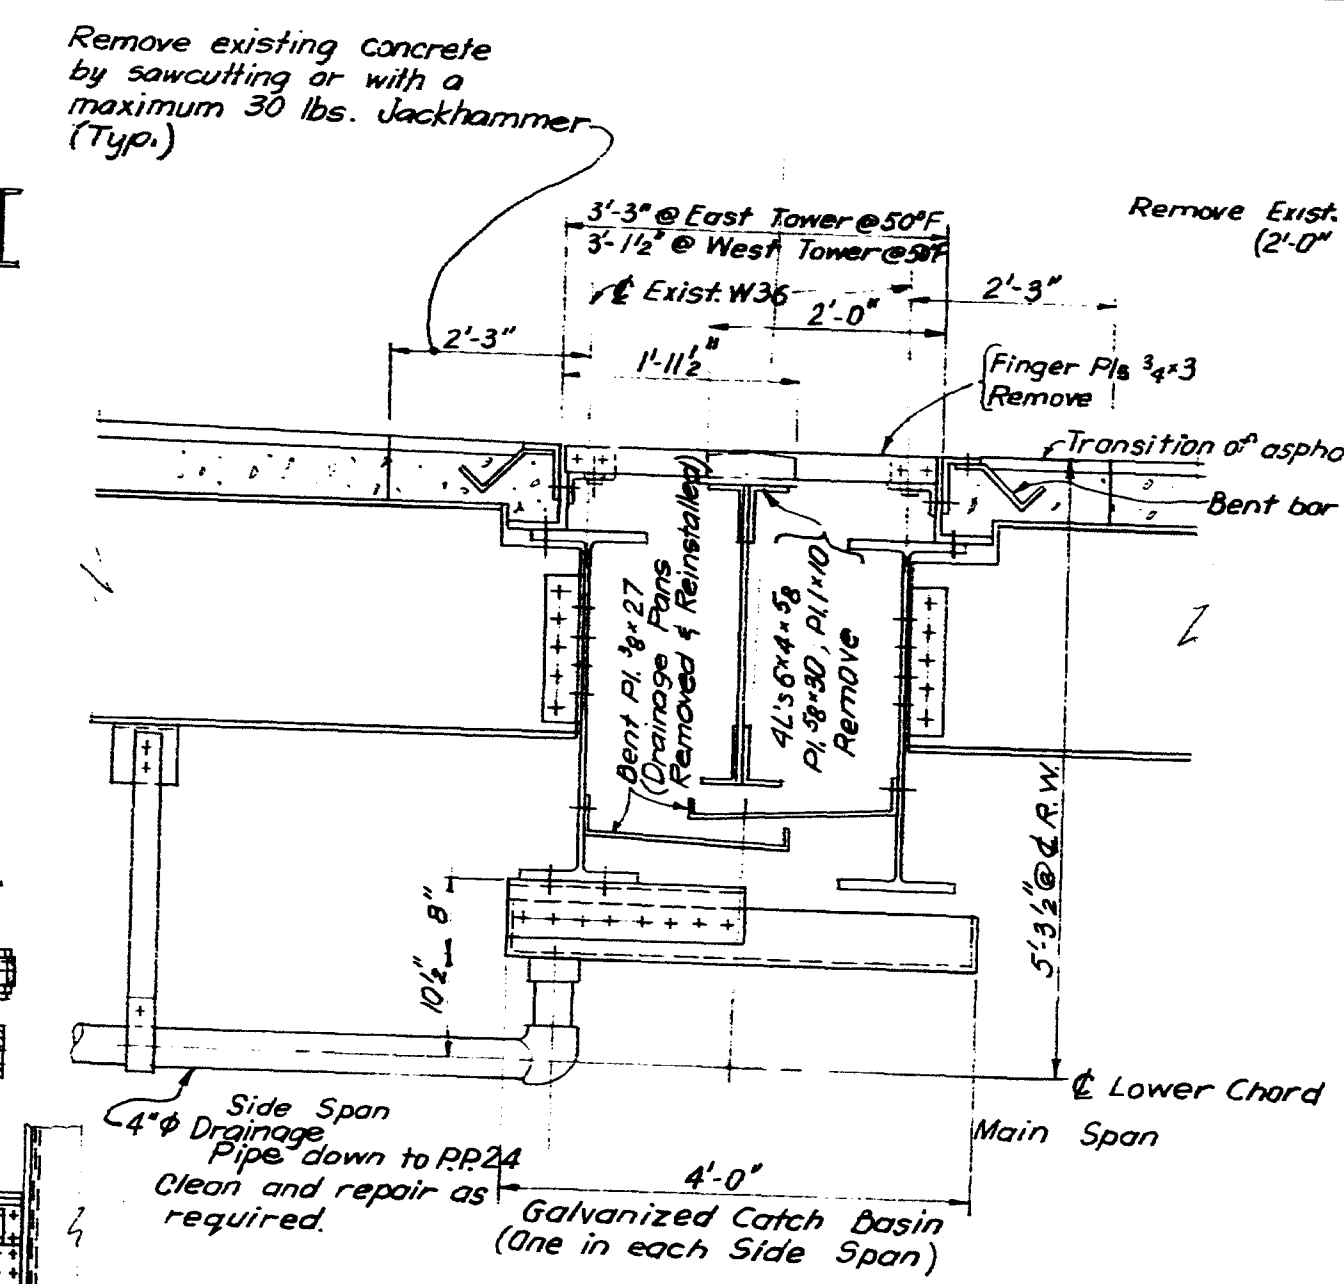 Remove existing concrete
by sawcutting or with a
maximum 30 lbs. Jackhammer
(Typ.)
3'-3" @ East Tower @ 50°F
3'-1½" @ West Tower @ 50°F
Remove Exist.
(2'-0"
℄ Exist. W36
2'-3"
2'-0"
2'-3"
1'-11½"
Finger Pls ¾×3
Remove
Transition of aspha
Bent bar
Bent Pl. ⅜×27
(Drainage Pans
Removed & Reinstalled)
4L's 6×4×⅝
Pl. ⅝×30, Pl. 1×10
Remove
8"
10½"
5'-3½" @ ℄ R.W.
℄ Lower Chord
Side Span
Main Span
4"Φ Drainage
Pipe down to P.P.24
Clean and repair as
required.
4'-0"
Galvanized Catch Basin
(One in each Side Span)